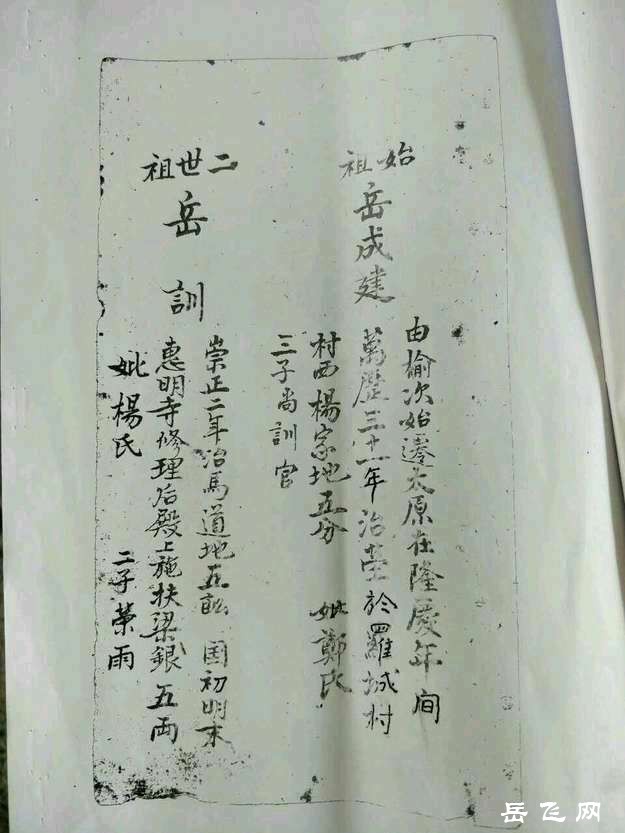 始祖
岳成建
由榆次始遷太原在隆慶年間
萬歷三十一年治塋於羅城村
村西楊宗地五分 妣鄭氏
三子尚訓官
二世祖
岳訓
崇正二年治馬道地五畝 国初明末
惠明寺修理后殿上施扶梁銀五両
妣楊氏 二子榮雨
岳飞网